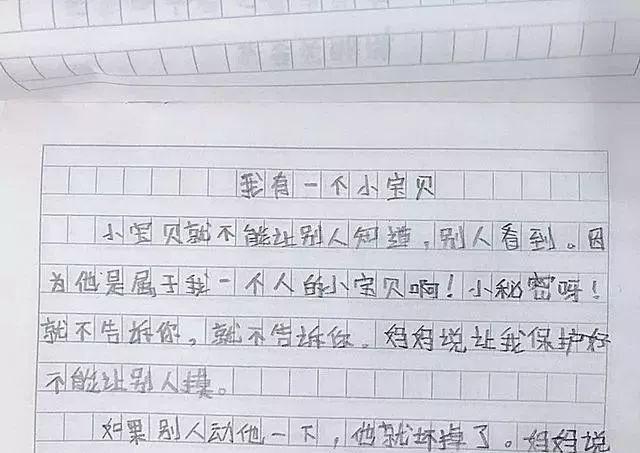 我有一个小宝贝
小宝贝就不能让别人知道，别人看到。因
为他是属于我一个人的小宝贝啊！小秘密呀！
就不告诉你，就不告诉你。妈妈说让我保护好
不能让别人摸。
如果别人动他一下，他就坏掉了。妈妈说